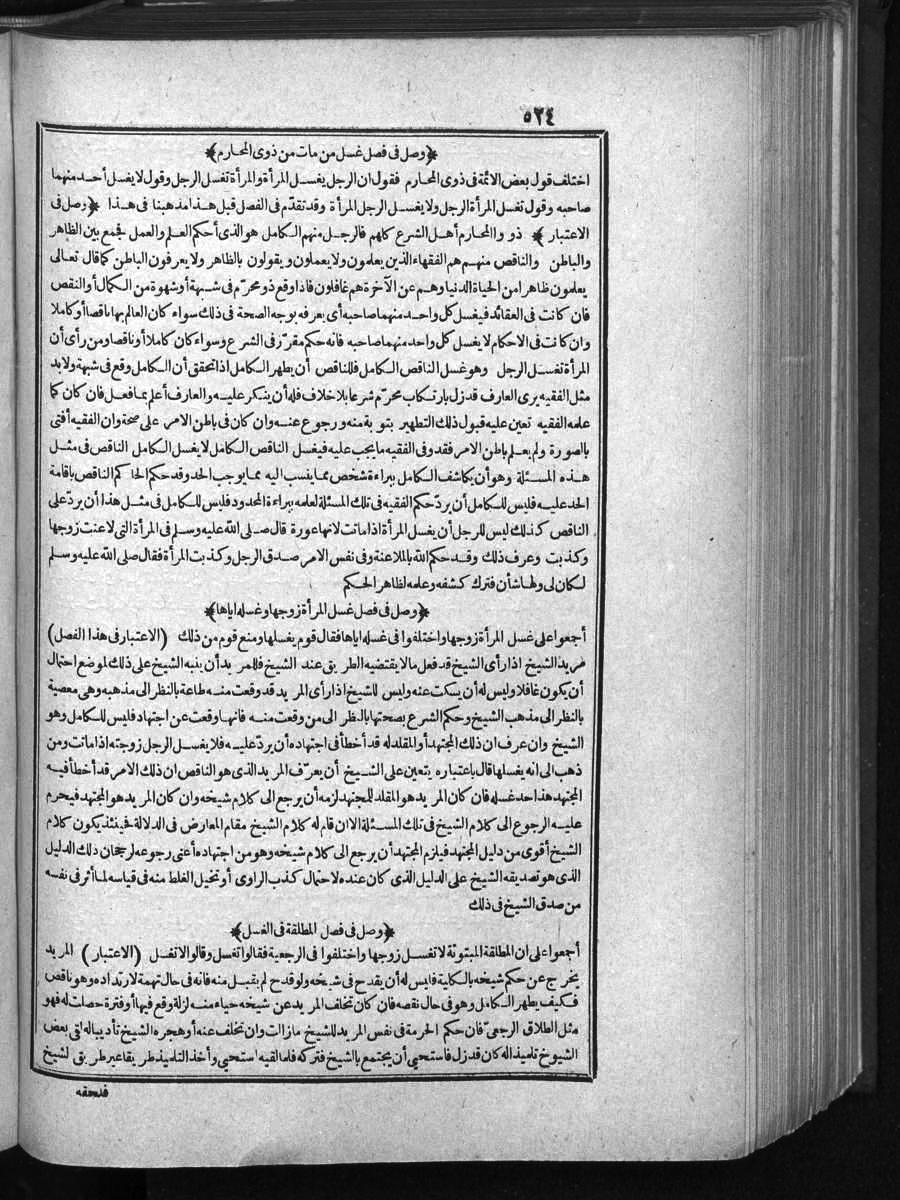 ٥٢٤
﴿وصل فى فصل غسل من مات من ذوى المحارم﴾
اختلف قول بعض الائمة فى ذوى المحارم فقول ان الرجل يغسل المرأة والمرأة تغسل الرجل وقول لا يغسل أحد منهما
صاحبه وقول تغسل المرأة الرجل ولا يغسل الرجل المرأة وقد تقدّم فى الفصل قبل هذا مذهبنا فى هذا ﴿وصل فى
الاعتبار﴾ ذو والمحارم أهل الشرع كلهم فالرجل منهم الكامل هو الذى أحكم العلم والعمل فجمع بين الظاهر
والباطن والناقص منهم هم الفقهاء الذين يعلمون ولا يعملون ويقولون بالظاهر ولا يعرفون الباطن كما قال تعالى
يعلمون ظاهرا من الحياة الدنيا وهم عن الآخرة هم غافلون فاذا وقع ذو محرّم فى شبهة أو شهوة من الكمال أو النقص
فان كانت فى العقائد فيغسل كل واحد منهما صاحبه أى يعرفه بوجه الصحة فى ذلك سواء كان العالم بها ناقصا أو كاملا
وان كانت فى الاحكام لا يغسل كل واحد منهما صاحبه فانه حكم مقرّر فى الشرع وسواء كان كاملا أو ناقصا ومن رأى أن
المرأة تغسل الرجل وهو غسل الناقص الكامل فللناقص أن يطهر الكامل اذا تحقق أن الكامل وقع فى شبهة ولا بد
مثل الفقيه يرى العارف قد زل بارتكاب محرّم شرعا بلا خلاف فله أن ينكر عليه والعارف أعلم بما فعل فان كان كما
علمه الفقيه تعين عليه قبول ذلك التطهير بتوبة منه ورجوع عنه وان كان فى باطن الامر على صحة وان الفقيه أفتى
بالصورة ولم يعلم باطن الامر فقد وفى الفقيه ما يجب عليه فيغسل الناقص الكامل لا يغسل الكامل الناقص فى مثل
هذه المسئلة وهو أن يكاشف الكامل ببراءة شخص مما ينسب اليه مما يوجب الحد وقد حكم الحاكم الناقص باقامة
الحد عليه فليس للكامل أن يردّ حكم الفقيه فى تلك المسئلة لعلمه ببراءة المحدود فليس للكامل فى مثل هذا أن يردّ على
الناقص كذلك ليس للرجل أن يغسل المرأة اذا ماتت لانها عورة قال صلى الله عليه وسلم فى المرأة التى لاعنت زوجها
وكذبت وعرف ذلك وقد حكم الله بالملاعنة وفى نفس الامر صدق الرجل وكذبت المرأة فقال صلى الله عليه وسلم
لكان لى ولها شأن فترك كشفه وعلمه لظاهر الحكم
﴿وصل فى فصل غسل المرأة زوجها وغسله اياها﴾
أجمعوا على غسل المرأة زوجها واختلفوا فى غسله اياها فقال قوم يغسلها ومنع قوم من ذلك (الاعتبار فى هذا الفصل)
مريد الشيخ اذا رأى الشيخ قد فعل ما لا يقتضيه الطريق عند الشيخ فللمريد أن ينبه الشيخ على ذلك لموضع احتمال
أن يكون غافلا وليس له أن يسكت عنه وليس للشيخ اذا رأى المريد قد وقعت منه طاعة بالنظر الى مذهبه وهى معصية
بالنظر الى مذهب الشيخ وحكم الشرع بصحتها بالنظر الى من وقعت منه فانها وقعت عن اجتهاد فليس للكامل وهو
الشيخ وان عرف ان ذلك المجتهد أو المقلد له قد أخطأ فى اجتهاده أن يردّ عليه فلا يغسل الرجل زوجته اذا ماتت ومن
ذهب الى انه يغسلها قال باعتباره يتعين على الشيخ أن يعرّف المريد الذى هو الناقص ان ذلك الامر قد أخطأ فيه
المجتهد هذا حد غسله فان كان المريد هو المقلد للمجتهد لزمه أن يرجع الى كلام شيخه وان كان المريد هو المجتهد فيحرم
عليه الرجوع الى كلام الشيخ فى تلك المسئلة الا ان قام له كلام الشيخ مقام المعارض فى الدلالة فحينئذ يكون كلام
الشيخ أقوى من دليل المجتهد فيلزم المجتهد أن يرجع الى كلام شيخه وهو من اجتهاده أعنى رجوعه لرجحان ذلك الدليل
الذى هو تصديقه الشيخ على الدليل الذى كان عنده لاحتمال كذب الراوى أو تخيل الغلط منه فى قياسه لما أثر فى نفسه
من صدق الشيخ فى ذلك
﴿وصل فى فصل المطلقة فى الغسل﴾
أجمعوا على ان المطلقة المبتوتة لا تغسل زوجها واختلفوا فى الرجعية فقالوا تغسل وقالوا لا تغسل (الاعتبار) المريد
يخرج عن حكم شيخه بالكلية فليس له أن يقدح فى شيخه ولو قدح لم يقبل منه فانه فى حال تهمة لارتداده وهو ناقص
فكيف يطهر الكامل وهو فى حال نقصه فان كان تخلف المريد عن شيخه حياء منه لزلة وقع فيها أو فترة حصلت له فهو
مثل الطلاق الرجعىّ فان حكم الحرمة فى نفس المريد للشيخ ما زالت وان تخلف عنه أو هجره الشيخ تأديبا له لقى بعض
الشيوخ تلميذا له كان قد زل فاستحيى أن يجتمع بالشيخ فتركه فلما لقيه استحيى وأخذ التلميذ طريقا غير طريق الشيخ
فلحقه